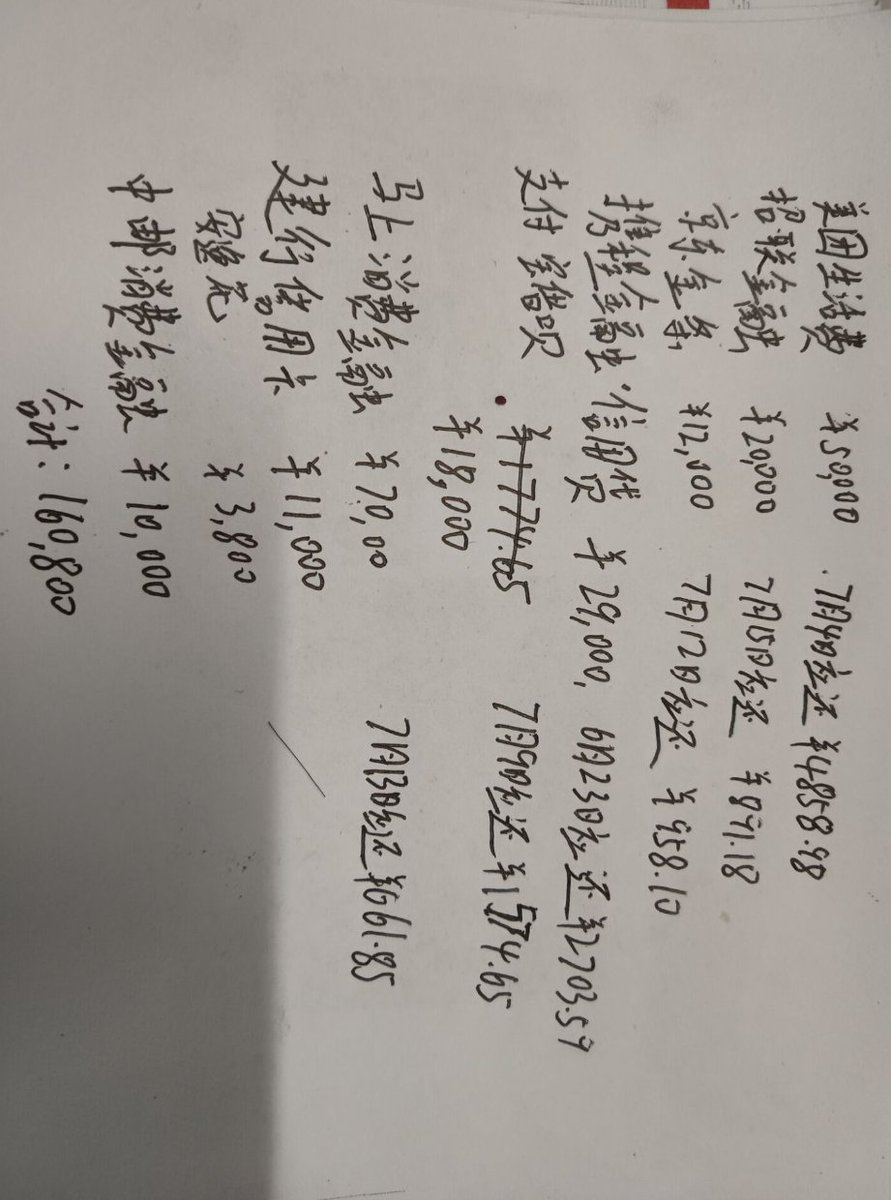 美团生活费 ¥50,000 7月4日应还 ¥4858.98
招联金融 ¥20,000 7月15日应还 ¥871.18
京东金条 ¥12,000 7月12日应还 ¥958.10
携程金融·信用贷 ¥29,000, 6月23日应还 ¥2703.59
支付宝借呗 ¥1774.65 7月5日应还 ¥1574.65
¥18,000
马上消费金融 ¥70,00 7月13日应还 ¥661.85
建行信用卡 ¥11,000
安逸花 ¥3,800
中邮消费金融 ¥10,000
合计: 160,800